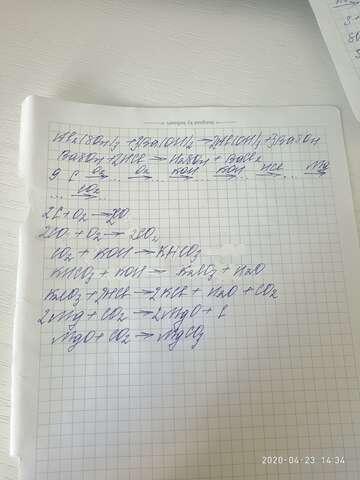 Al₂(SO₄)₃ + 3Ba(OH)₂ → 2Al(OH)₃ + 3BaSO₄
BaSO₄ + 2HCl → H₂SO₄ + BaCl₂
9 C O₂ → ... O₂ → ... KOH → ... KOH → ... HCl → ... Mg →
... CO₂ →
2C + O₂ → 2CO
2CO + O₂ → 2CO₂
CO₂ + KOH → KHCO₃
KHCO₃ + KOH → K₂CO₃ + H₂O
K₂CO₃ + 2HCl → 2KCl + H₂O + CO₂
2Mg + CO₂ → 2MgO + C
MgO + CO₂ → MgCO₃
2020-04-23 14:34